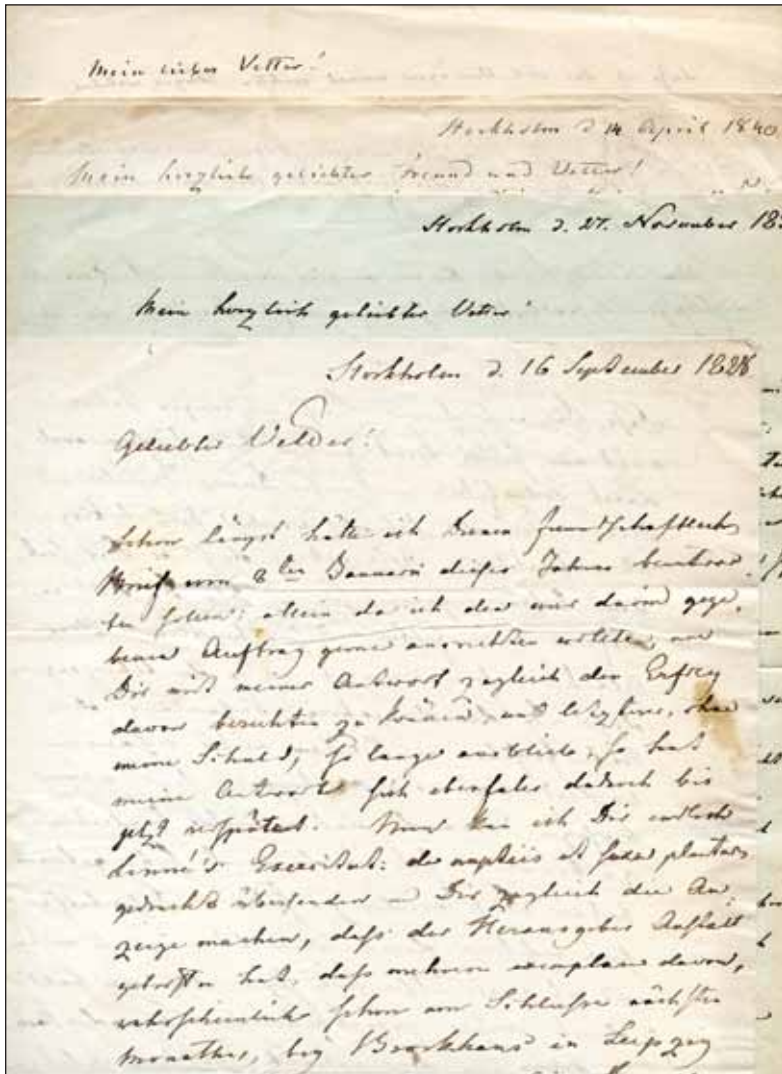 Mein lieber Vetter!
Stockholm d 14 April 1840.
Mein herzlich geliebter Freund und Vetter!
Stockholm d. 27. November 18
Mein herzlich geliebter Vetter!
Stockholm d. 16 September 1828
Geliebter Vetter!
Schon längst hätte ich Deinen freundschaftlich
Brief vom 8ten Januarii dieses Jahres beantwor
ten sollen; allein da ich den mir darin gege,
benen Auftrag gerne ausrichten wollte, um
Dir mit meiner Antwort zugleich den Erfolg
davon berichten zu können, und letztere, ohne
meine Schuld, so lange ausblieb, so hat
meine Antwort sich ebenfalls dadurch bis
jetzt verspätet. Nun kan ich Dir endlich
Linné's Exercitat: de nuptiis et sexu plantar
gedruckt übersenden u Dir zugleich die An,
zeige machen, daß der Herausgeber Anstalt
getroffen hat, daß mehrere exemplare davon,
wahrscheinlich schon am Schlusse nächsten
Monathes, bey Brockhaus in Leipzig